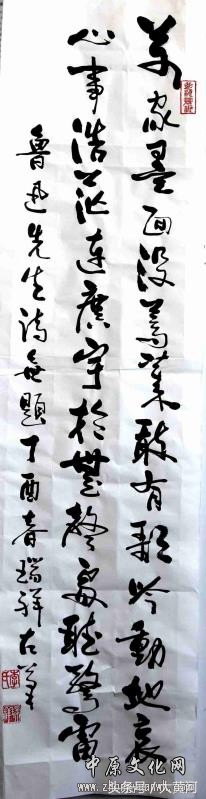 萬家墨面没蒿萊敢有歌吟動地哀
心事浩茫連廣宇於無聲處聽驚雷
魯迅先生詩無題丁酉春瑞祥左筆
中原文化网
头条号 / 大黄河